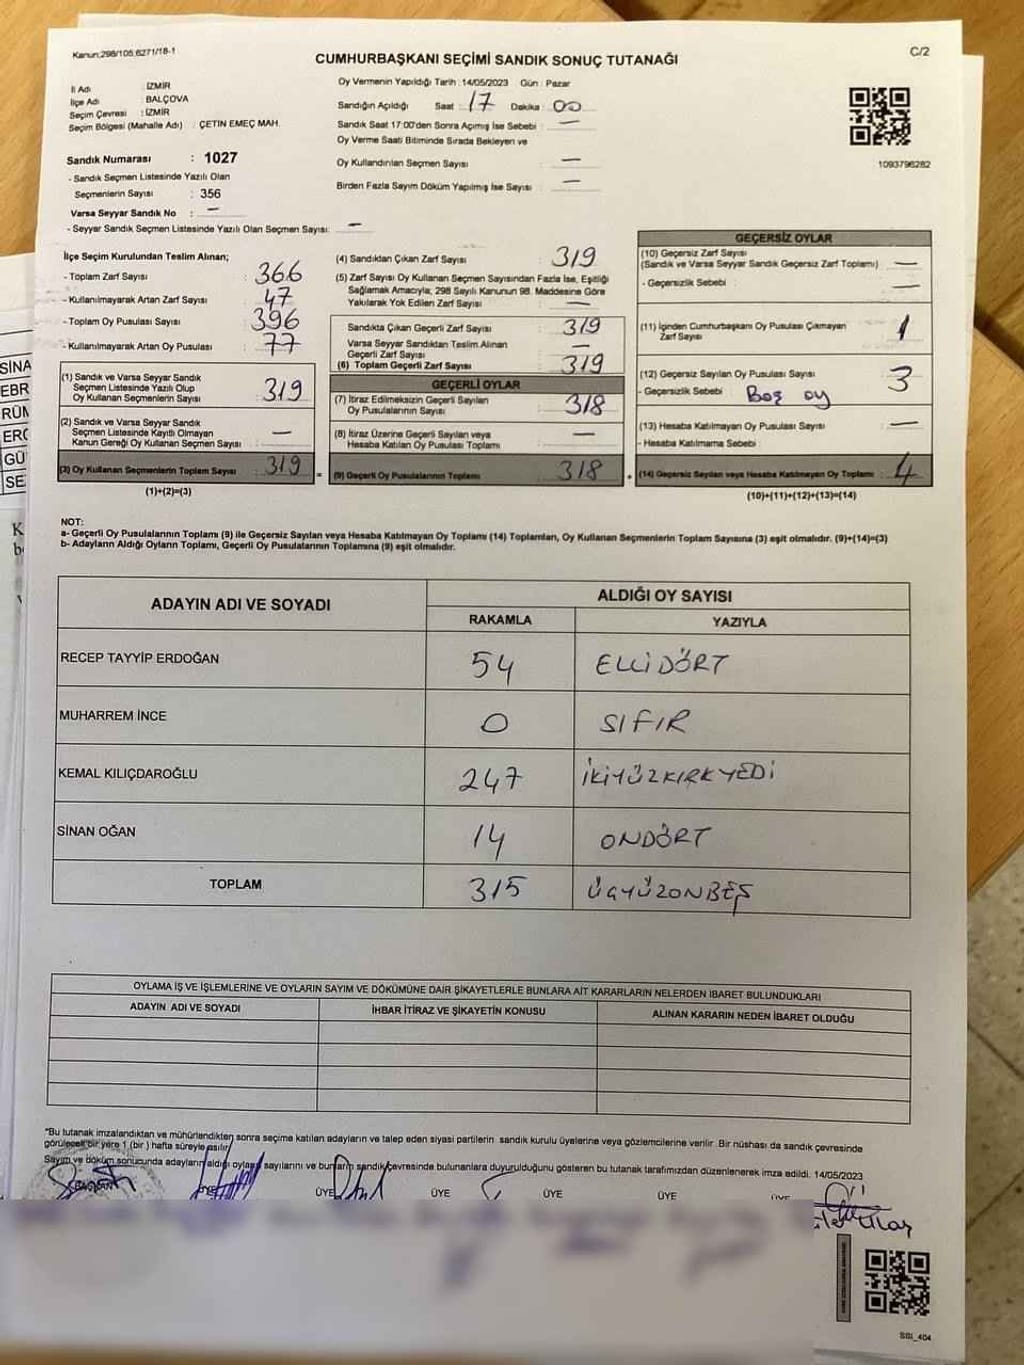 Kanun:298/105,6271/18-1
C/2
CUMHURBAŞKANI SEÇİMİ SANDIK SONUÇ TUTANAĞI
İl Adı : İZMİR
İlçe Adı : BALÇOVA
Seçim Çevresi : İZMİR
Seçim Bölgesi (Mahalle Adı) : ÇETİN EMEÇ MAH.
Sandık Numarası : 1027
- Sandık Seçmen Listesinde Yazılı Olan
Seçmenlerin Sayısı : 356
Varsa Seyyar Sandık No : —
- Seyyar Sandık Seçmen Listesinde Yazılı Olan Seçmen Sayısı: —
Oy Vermenin Yapıldığı Tarih : 14/05/2023 Gün : Pazar
Sandığın Açıldığı Saat : 17 Dakika : 00
Sandık Saat 17:00'den Sonra Açımış İse Sebebi : —
Oy Verme Saati Bitiminde Sırada Bekleyen ve
Oy Kullandırılan Seçmen Sayısı : —
Birden Fazla Sayım Döküm Yapılmış İse Sayısı : —
1093796282
İlçe Seçim Kurulundan Teslim Alınan;
- Toplam Zarf Sayısı : 366
- Kullanılmayarak Artan Zarf Sayısı : 47
- Toplam Oy Pusulası Sayısı : 396
- Kullanılmayarak Artan Oy Pusulası : 77
(1) Sandık ve Varsa Seyyar Sandık
Seçmen Listesinde Yazılı Olup
Oy Kullanan Seçmenlerin Sayısı : 319
(2) Sandık ve Varsa Seyyar Sandık
Seçmen Listesinde Kayıtlı Olmayan
Kanun Gereği Oy Kullanan Seçmen Sayısı : —
(3) Oy Kullanan Seçmenlerin Toplam Sayısı : 319
(1)+(2)=(3)
(4) Sandıktan Çıkan Zarf Sayısı : 319
(5) Zarf Sayısı Oy Kullanan Seçmen Sayısından Fazla İse, Eşitliği
Sağlamak Amacıyla; 298 Sayılı Kanunun 98. Maddesine Göre
Yakılarak Yok Edilen Zarf Sayısı : —
Sandıkta Çıkan Geçerli Zarf Sayısı : 319
Varsa Seyyar Sandıktan Teslim Alınan
Geçerli Zarf Sayısı : —
(6) Toplam Geçerli Zarf Sayısı : 319
GEÇERLİ OYLAR
(7) İtiraz Edilmeksizin Geçerli Sayılan
Oy Pusulalarının Sayısı : 318
(8) İtiraz Üzerine Geçerli Sayılan veya
Hesaba Katılan Oy Pusulası Toplamı : —
(9) Geçerli Oy Pusulalarının Toplamı : 318
GEÇERSİZ OYLAR
(10) Geçersiz Zarf Sayısı
(Sandık ve Varsa Seyyar Sandık Geçersiz Zarf Toplamı) : —
- Geçersizlik Sebebi : —
(11) İçinden Cumhurbaşkanı Oy Pusulası Çıkmayan
Zarf Sayısı : 1
(12) Geçersiz Sayılan Oy Pusulası Sayısı : 3
- Geçersizlik Sebebi : Boş oy
(13) Hesaba Katılmayan Oy Pusulası Sayısı : —
- Hesaba Katılmama Sebebi :
(14) Geçersiz Sayılan veya Hesaba Katılmayan Oy Toplamı : 4
(10)+(11)+(12)+(13)=(14)
NOT:
a- Geçerli Oy Pusulalarının Toplamı (9) ile Geçersiz Sayılan veya Hesaba Katılmayan Oy Toplamı (14) Toplamları, Oy Kullanan Seçmenlerin Toplam Sayısına (3) eşit olmalıdır. (9)+(14)=(3)
b- Adayların Aldığı Oyların Toplamı, Geçerli Oy Pusulalarının Toplamına (9) eşit olmalıdır.
ADAYIN ADI VE SOYADI
ALDIĞI OY SAYISI
RAKAMLA YAZIYLA
RECEP TAYYİP ERDOĞAN 54 ELLİDÖRT
MUHARREM İNCE 0 SIFIR
KEMAL KILIÇDAROĞLU 247 İKİYÜZKIRKYEDİ
SİNAN OĞAN 14 ONDÖRT
TOPLAM 315 ÜÇYÜZONBEŞ
OYLAMA İŞ VE İŞLEMLERİNE VE OYLARIN SAYIM VE DÖKÜMÜNE DAİR ŞİKAYETLERLE BUNLARA AİT KARARLARIN NELERDEN İBARET BULUNDUKLARI
ADAYIN ADI VE SOYADI İHBAR İTİRAZ VE ŞİKAYETİN KONUSU ALINAN KARARIN NEDEN İBARET OLDUĞU
*Bu tutanak imzalandıktan ve mühürlendikten sonra seçime katılan adayların ve talep eden siyasi partilerin sandık kurulu üyelerine veya gözlemcilerine verilir. Bir nüshası da sandık çevresinde
görülecek bir yere 1 (bir ) hafta süreyle asılır.
Sayım ve döküm sonucunda adayların aldığı oyların sayılarını ve bunların sandık çevresinde bulunanlara duyurulduğunu gösteren bu tutanak tarafımızdan düzenlenerek imza edildi. 14/05/2023
BAŞKAN ÜYE ÜYE ÜYE ÜYE ÜYE ÜYE
SSI_404
SİNA
EBR
RÜM
ERC
GÜ
SE